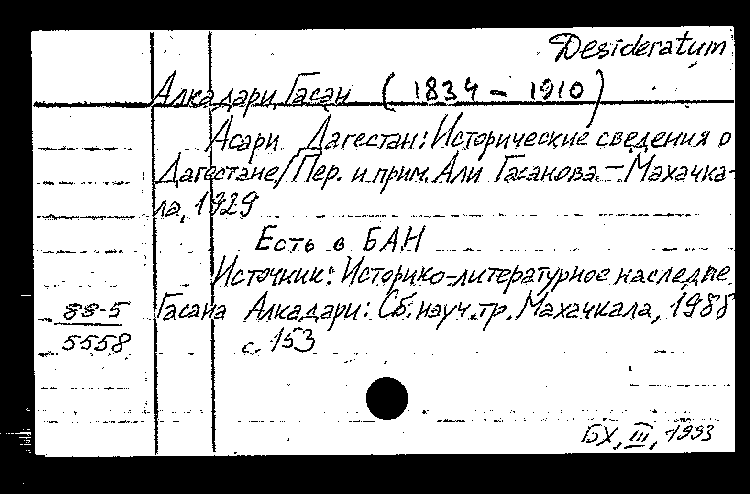 Desideratum
Алкадари, Гасан (1834 – 1910)
Асари Дагестан: Исторические сведения о
Дагестане / Пер. и прим. Али Гасанова. – Махачка-
ла, 1929
Есть в БАН
Источник: Историко-литературное наследие
88-5 Гасана Алкадари: Сб. науч. тр. Махачкала, 1988
5558 с. 153
БХ, III, 1993